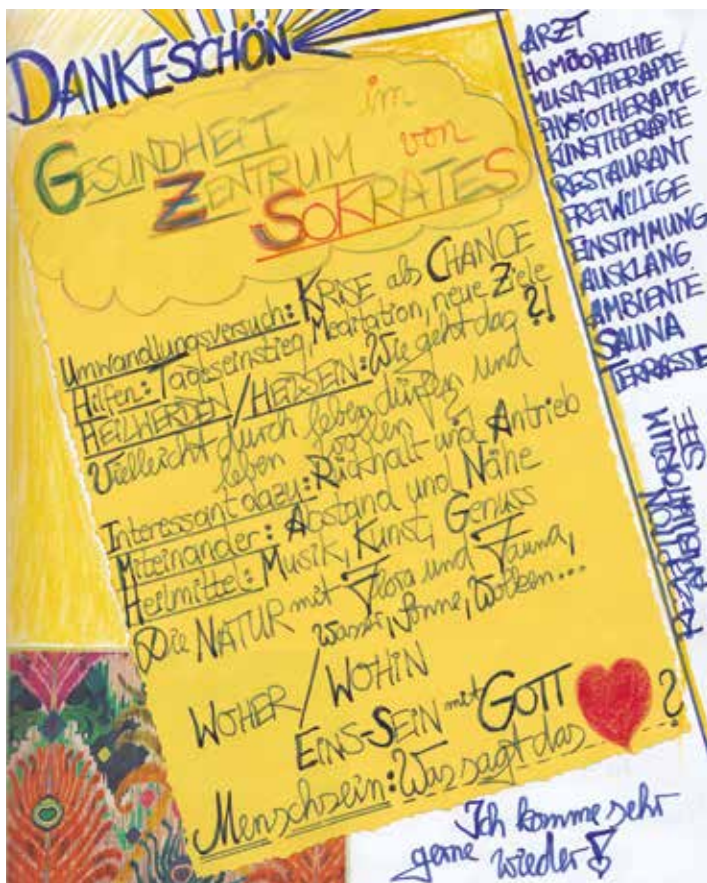 DANKESCHÖN
GESUNDHEIT im
ZENTRUM von
SOKRATES
Umwandlungsversuch: KRISE als CHANCE
Hilfen: Tageseinstieg, Meditation, neue Ziele
HEILWERDEN / HEILSEIN: Wie geht das?!
Vielleicht durch leben dürfen und
leben wollen?
Interessant dazu: Rückhalt und Antrieb
Miteinander: Abstand und Nähe
Heilmittel: Musik, Kunst, Genuss
Die NATUR mit Flora und Fauna,
Wasser, Sonne, Wolken...
WOHER / WOHIN
EINS-SEIN mit GOTT
Menschsein: Was sagt das ?
Ich komme sehr
gerne wieder!
ARZT
HOMÖOPATHIE
MUSIKTHERAPIE
PHYSIOTHERAPIE
KUNSTTHERAPIE
RESTAURANT
FREIWILLIGE
EINSTIMMUNG
AUSKLANG
AMBIENTE
SAUNA
TERRASSE
SEE
REZEPTION